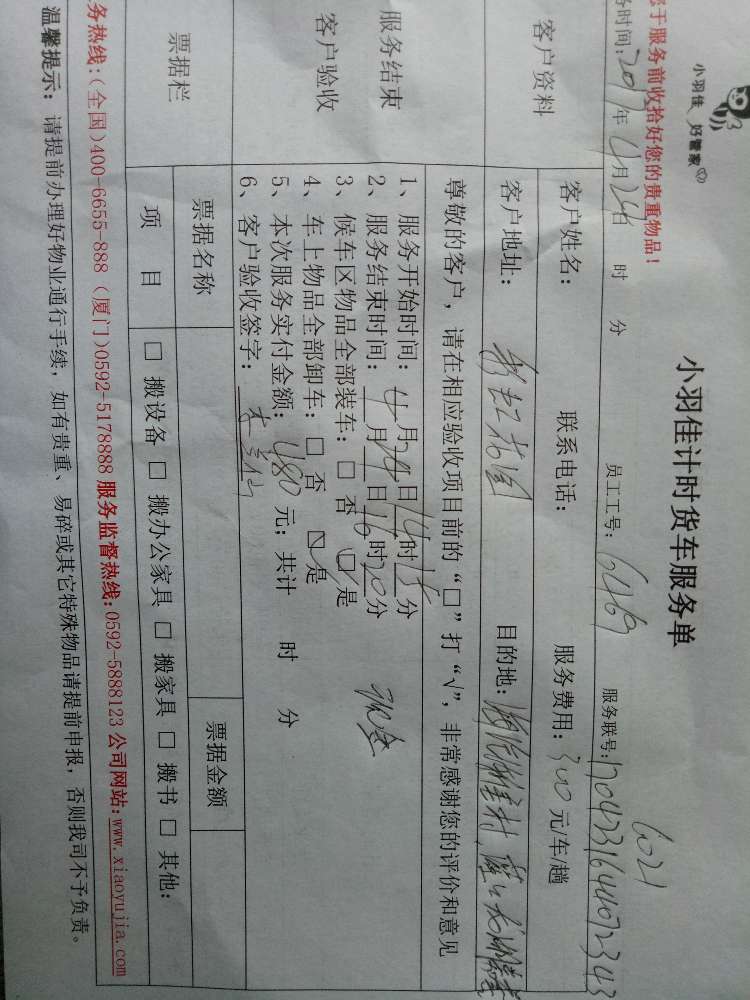 小羽佳 好管家
您于服务前收拾好您的贵重物品！
小羽佳计时货车服务单
6021
务时间：2017年4月24日 时 分 员工工号：6469 服务联号：1704231644072343
客户资料
客户姓名： 联系电话： 服务费用：300元/车/趟
客户地址： 目的地：
尊敬的客户，请在相应验收项目前的“□”打“√”，非常感谢您的评价和意见
服务结束
客户验收
1、服务开始时间：4月24日14时15分
2、服务结束时间：4月24日16时20分 现金
3、候车区物品全部装车：□ 否 ☑ 是
4、车上物品全部卸车：□ 否 ☑ 是
5、本次服务实付金额：480元；共计 时 分
6、客户验收签字：
票据栏
票据名称 票据金额
项 目 □ 搬设备 □ 搬办公家具 □ 搬家具 □ 搬书 □ 其他:
务热线：(全国)400-6655-888（厦门)0592-5178888 服务监督热线:0592-5888123 公司网站:www.xiaoyujia.com
温馨提示：请提前办理好物业通行手续，如有贵重、易碎或其它特殊物品请提前申报，否则我司不予负责。